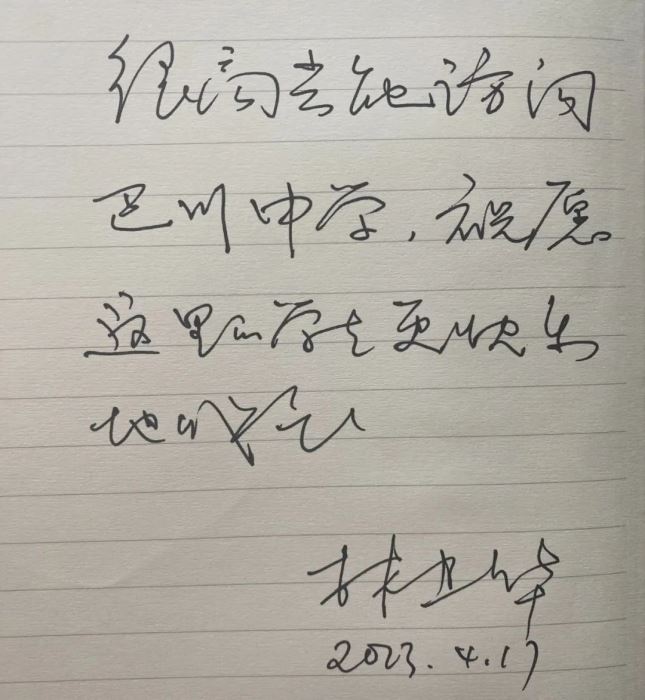 很高兴能访问
巴川中学，祝愿
这里的学生更快乐
地
林卫华
2023.4.17